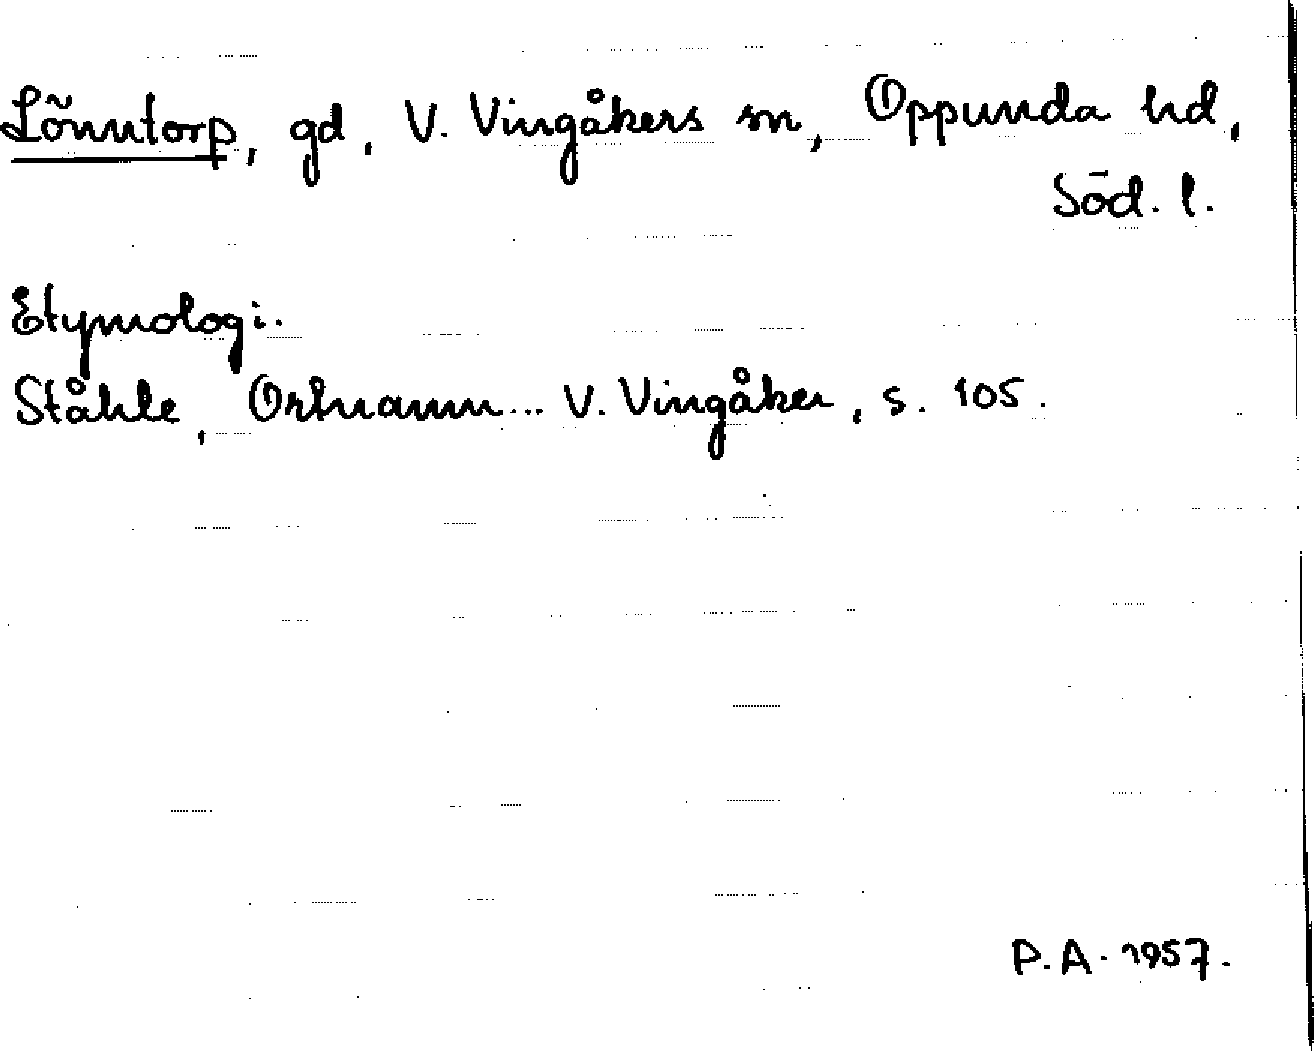 Lönntorp, gd, V. Vingåkers sn, Oppunda hd,
Söd. l.
Etymologi.
Ståhle, Ortnamn... V. Vingåker, s. 105.
P.A. 1957.